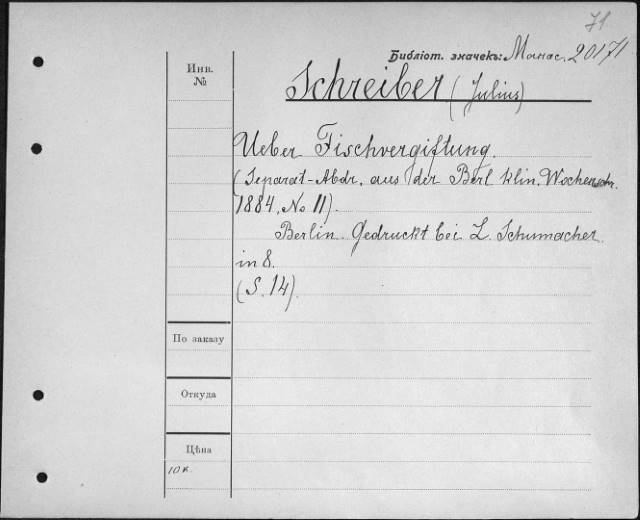 71
Библіот. значекъ: Манас. 20171
Инв. №
Schreiber (Julius)
Ueber Fischvergiftung.
(Separat-Abdr. aus der Berl klin. Wochenschr.
1884, No 11).
Berlin. Gedruckt bei L. Schumacher.
in 8.
(S. 14).
По заказу
Откуда
Цѣна
10 к.